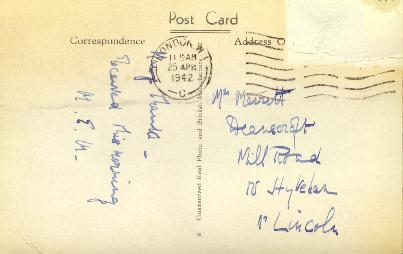 Post Card
Correspondence
Address O
LONDON W.1
11 15 AM
25 APR
1942
C
Many thanks -
received this morning
M. E. M.
Guaranteed Real Photo and British
Mrs Merratt
Deanscroft
Mill Road
N Hykeham
Nr Lincoln